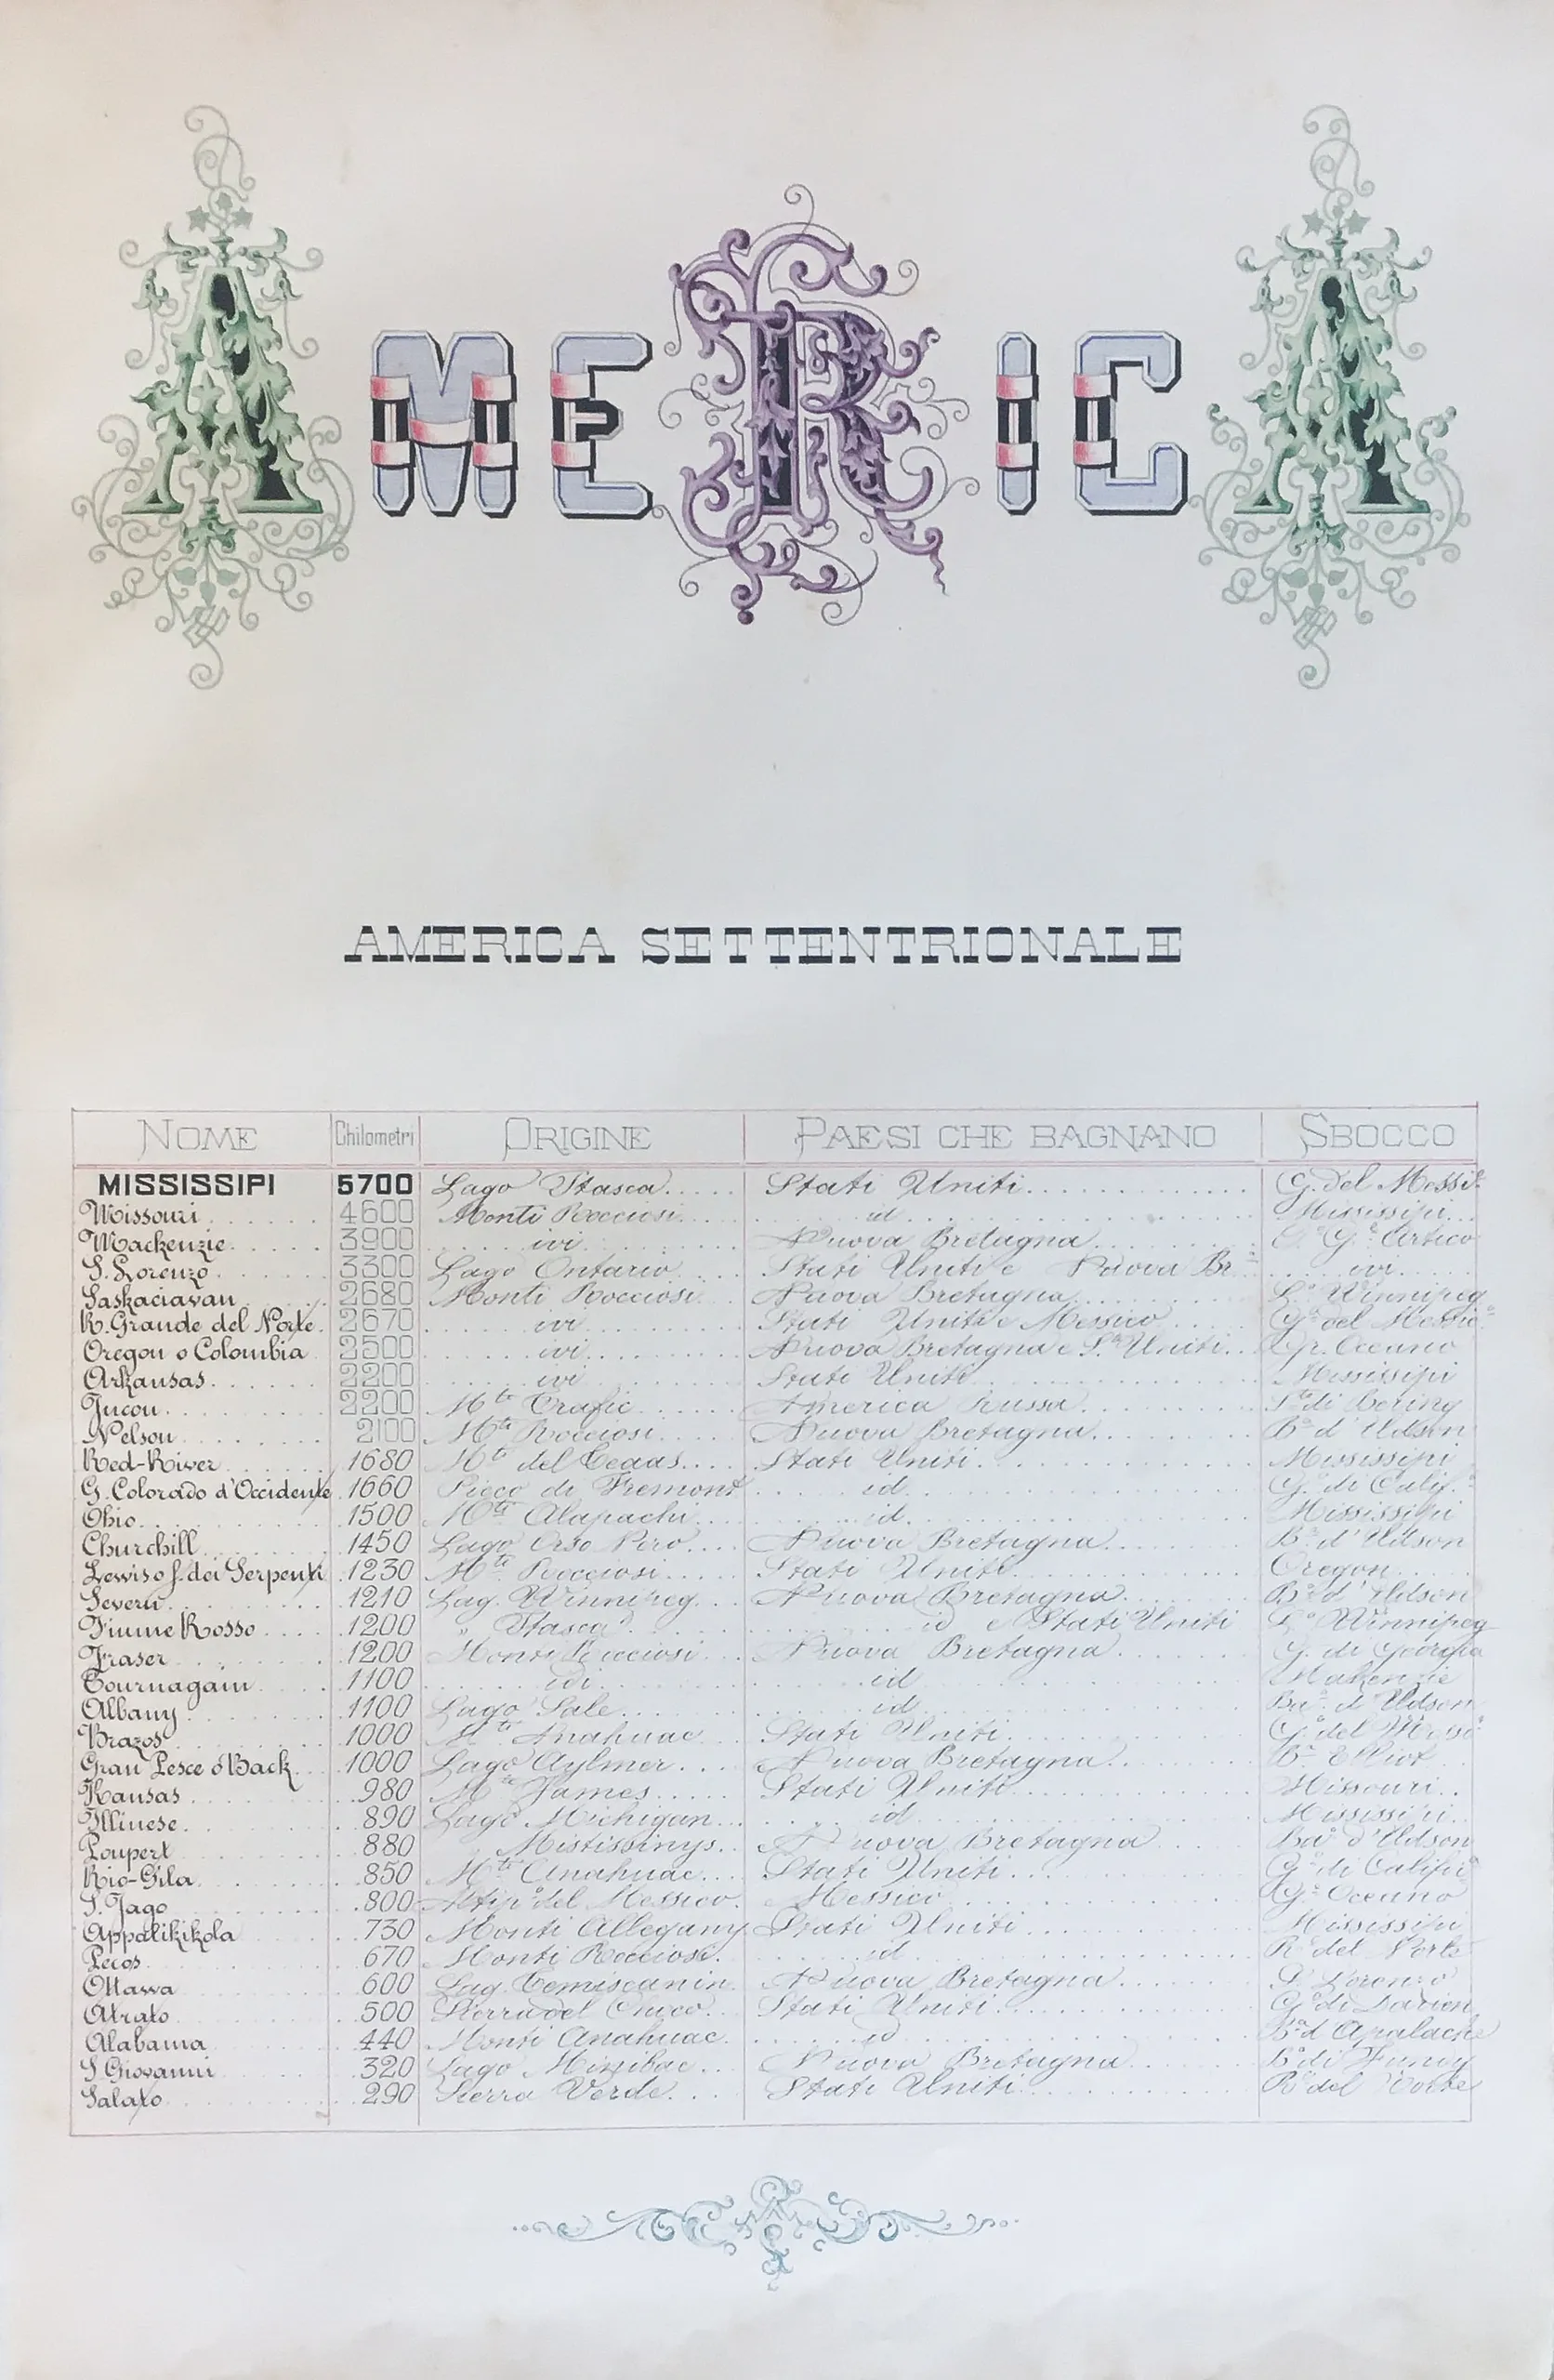 AMERICA
AMERICA SETTENTRIONALE
NOME Chilometri ORIGINE PAESI CHE BAGNANO SBOCCO
MISSISSIPI 5700 Lago Itasca..... Stati Uniti............. G. del Messi.
Missouri...... 4600 Monti Rocciosi.... id Mississipi...
Mackenzie..... 3900 ivi Nuova Bretagna Gº Artico
S. Lorenzo...... 3300 Lago Ontario Stati Uniti e Nuova Br. ivi
Saskaciavan 2680 Monti Rocciosi Nuova Bretagna Lº Winnipeg
R. Grande del Norte. 2670 ivi Stati Uniti e Messico Gº del Messicº
Oregon o Colombia 2500 ivi Nuova Bretagna e S.ti Uniti Gr. Oceano
Arkansas...... 2200 ivi Stati Uniti Mississipi
Jucon 2200 Mti America Russa Sto di Bering
Nelson 2100 Mti Rocciosi Nuova Bretagna Ba d'Udson
Red-River 1680 Mti del Stati Uniti Mississipi
G. Colorado d'Occidente 1660 Picco di Fremont id Gº di Calif.
Ohio 1500 Mti Alapachi id Mississipi
Churchill 1450 Lago Orso Nero Nuova Bretagna Ba d'Udson
Lewis o f. dei Serpenti 1230 Mti Rocciosi Stati Uniti Oregon
Severn 1210 Lag. Winnipeg Nuova Bretagna Ba d'Udson
Fiume Rosso 1200 „ Itasca id e Stati Uniti Lº Winnipeg
Fraser 1200 Monti Rocciosi Nuova Bretagna G. di Georgia
Tournagain 1100 id Makenzie
Albany 1100 Lago Sale id Ba d'Udson
Brazos 1000 Mti Anahuac Stati Uniti Gº del Messº
Gran Pesce o Back 1000 Lago Aylmer Nuova Bretagna Ba Elliot
Kansas 980 James Stati Uniti Missouri
Illinese 890 Lago Michigan id Mississipi
Poupert 880 Mistissinys Nuova Bretagna Ba d'Udson
Rio-Gila 850 Mti Anahuac Stati Uniti Gº di Califº
S. Jago 800 Altipº del Messico Messico Gº Oceano
Appalikikola 730 Monti Allegany Stati Uniti Mississipi
Pecos 670 Monti Rocciosi id Rº del Norte
Ottawa 600 Lag. Temiscanin Nuova Bretagna S. Lorenzo
Atrato 500 Sierra del Stati Uniti Gº di Darien
Alabama 440 Monti Anahuac id Ba d'Apalache
S. Giovanni 320 Lago Nuova Bretagna Ba di Fundy
Salato 290 Sierra Verde Stati Uniti Rº del Norte